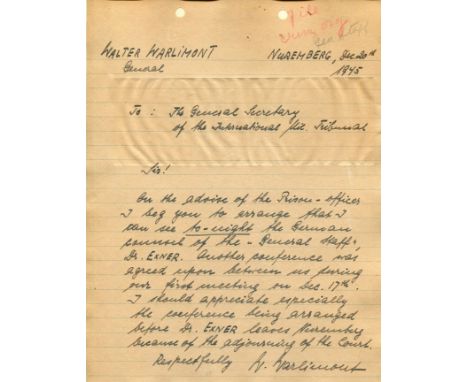 file
WALTER WARLIMONT
General
NUREMBERG, Dec 20th
1945
To: The General Secretary
of the International Mil. Tribunal
Sir!
On the advise of the Prison-officer
I beg you to arrange that I
can see to-night the German
counsel of the "General Staff",
Dr. EXNER. Another conference was
agreed upon between us during
our first meeting on Dec. 17th.
I should appreciate especially
the conference being arranged
before Dr. EXNER leaves Nuremberg
because of the adjourning of the Court.
Respectfully W. Warlimont